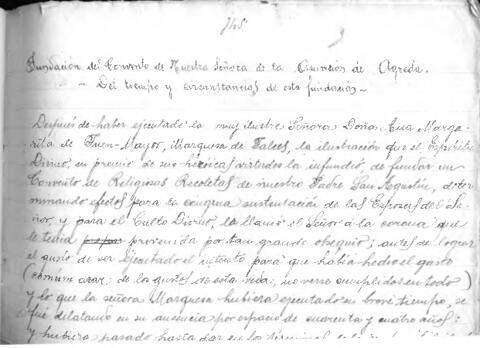 745
Fundación del Convento de Nuestra Señora de la Concepción de Agreda.
- Del tiempo y circunstancias de esta fundación -
Después de haber ejecutado la muy ilustre Señora Doña Ana Marga-
rita de Fuen-Mayor, Marquesa de Falces, la ilustración que el Espíritu
Divino, en premio de sus heróicas virtudes la infundió, de fundar un
Convento de Religiosas Recoletas de nuestro Padre San Agustín, deter-
minando efectos para la congrua sustentación de las Esposas del Se-
ñor y para el Culto Divino, la llamó el Señor á la corona que
le tenía prevenida por tan grande obsequio; antes de lograr
el gusto de ver ejecutado el intento para que había hecho el gasto
(común azar de los gustos de esta vida, no verse cumplidos en todo)
y lo que la señora Marquesa hubiera ejecutado en breve tiempo, se
fué dilatando en su ausencia por espacio de cuarenta y cuatro años;
y hubiera pasado hasta dar en los